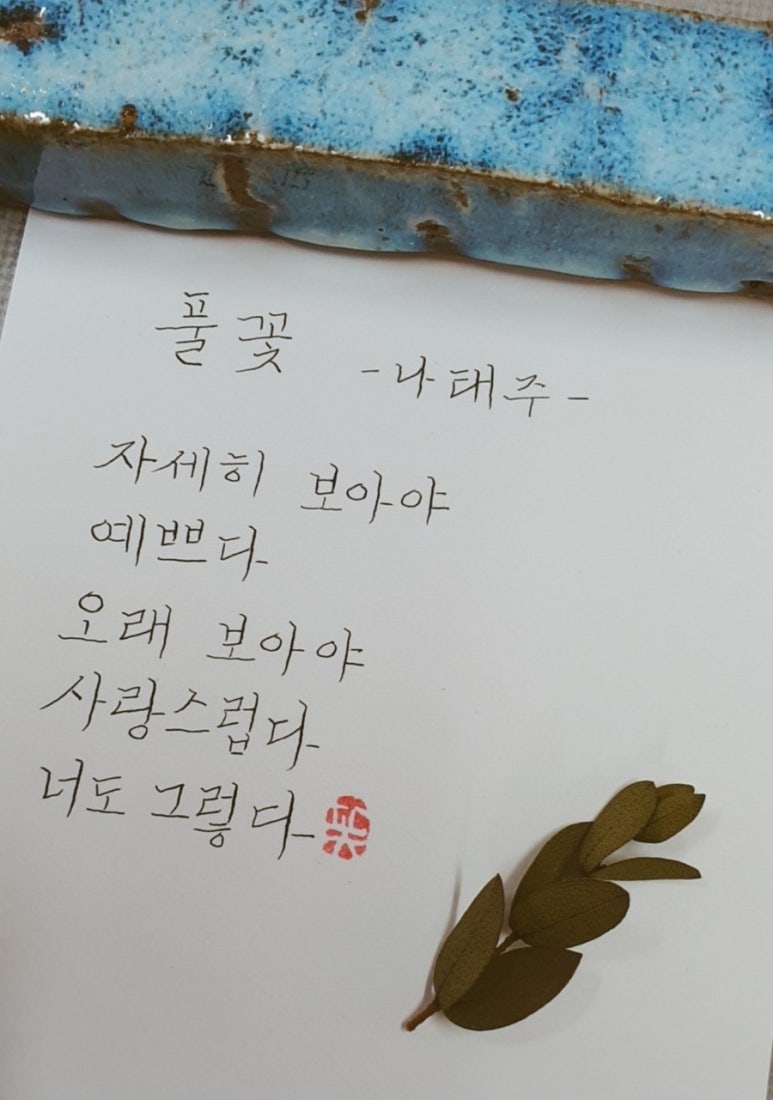 풀꽃
-나태주-
자세히 보아야
예쁘다
오래 보아야
사랑스럽다
너도 그렇다